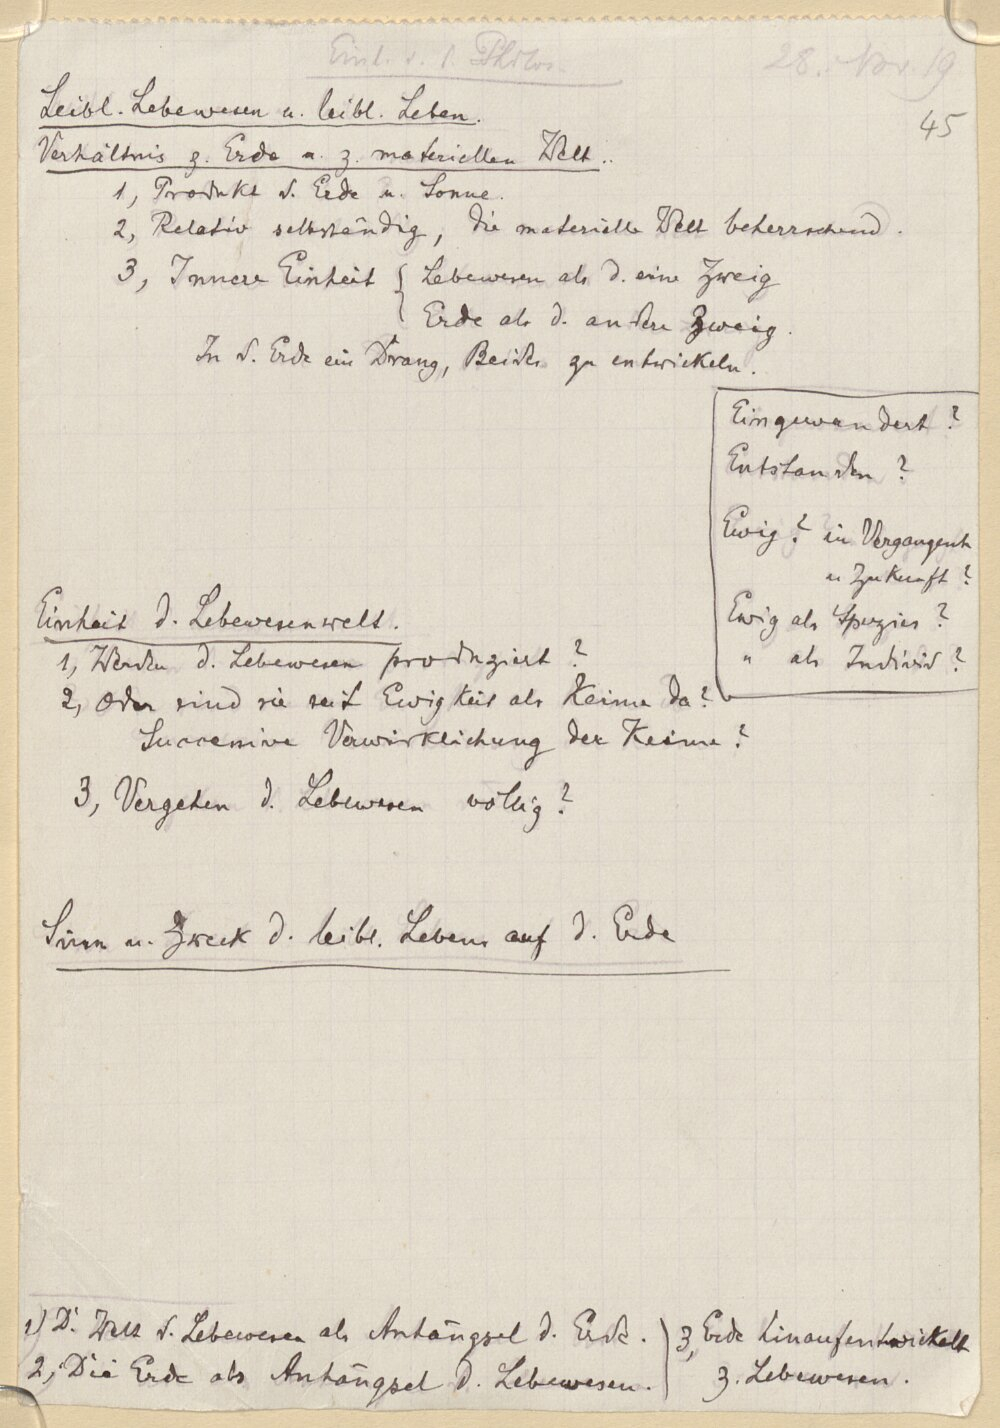 Einl. i. d. Philos. 28. Nov. 19
45
Leibl. Lebewesen u. leibl. Leben.
Verhältnis z. Erde u. z. materiellen Welt.
1, Produkt d. Erde u. Sonne.
2, Relativ selbständig, die materielle Welt beherrschend.
3, Innere Einheit { Lebewesen als d. eine Zweig
Erde als d. andere Zweig.
In d. Erde ein Drang, Beides zu entwickeln.
Eingewandert?
Entstanden?
Ewig? in Vergangenh
u Zukunft?
Ewig als Spezies?
" als Individ?
Einheit d. Lebewesenwelt.
1, Werden d. Lebewesen produziert?
2, Oder sind sie seit Ewigkeit als Keime da?
Successive Verwirklichung der Keime?
3, Vergehen d. Lebewesen völlig?
Sinn u. Zweck d. leibl. Lebens auf d. Erde
1) D. Welt d. Lebewesen als Anhängsel d. Erde.
2, Die Erde als Anhängsel d. Lebewesen.
3, Erde hinaufentwickelt
z. Lebewesen.